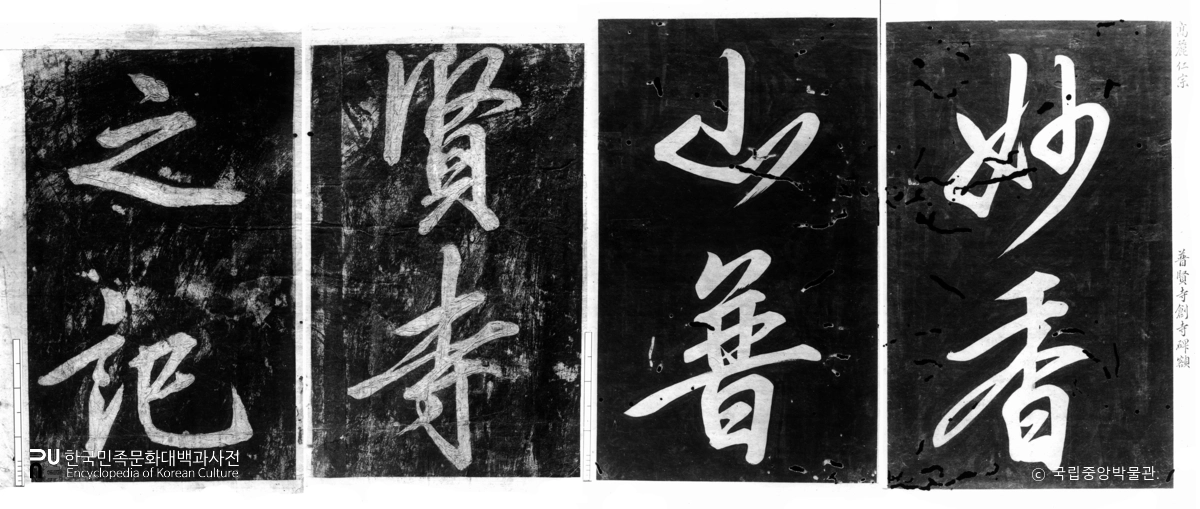 高麗仁宗
普賢寺創寺碑額
妙香
山普
賢寺
之記
한국민족문화대백과사전
Encyclopedia of Korean Culture
ⓒ 국립중앙박물관.